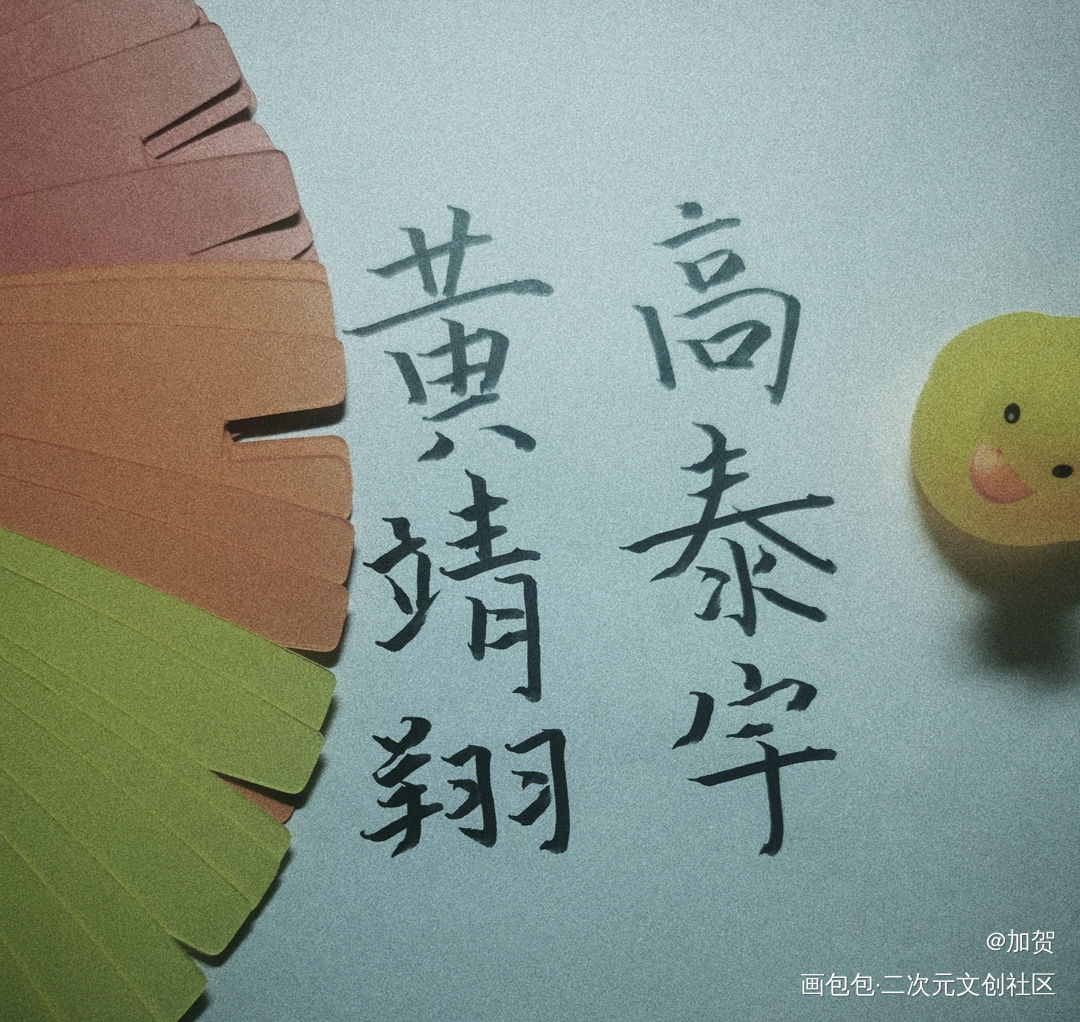 高泰宇
黄靖翔
@加贺
画包包·二次元文创社区